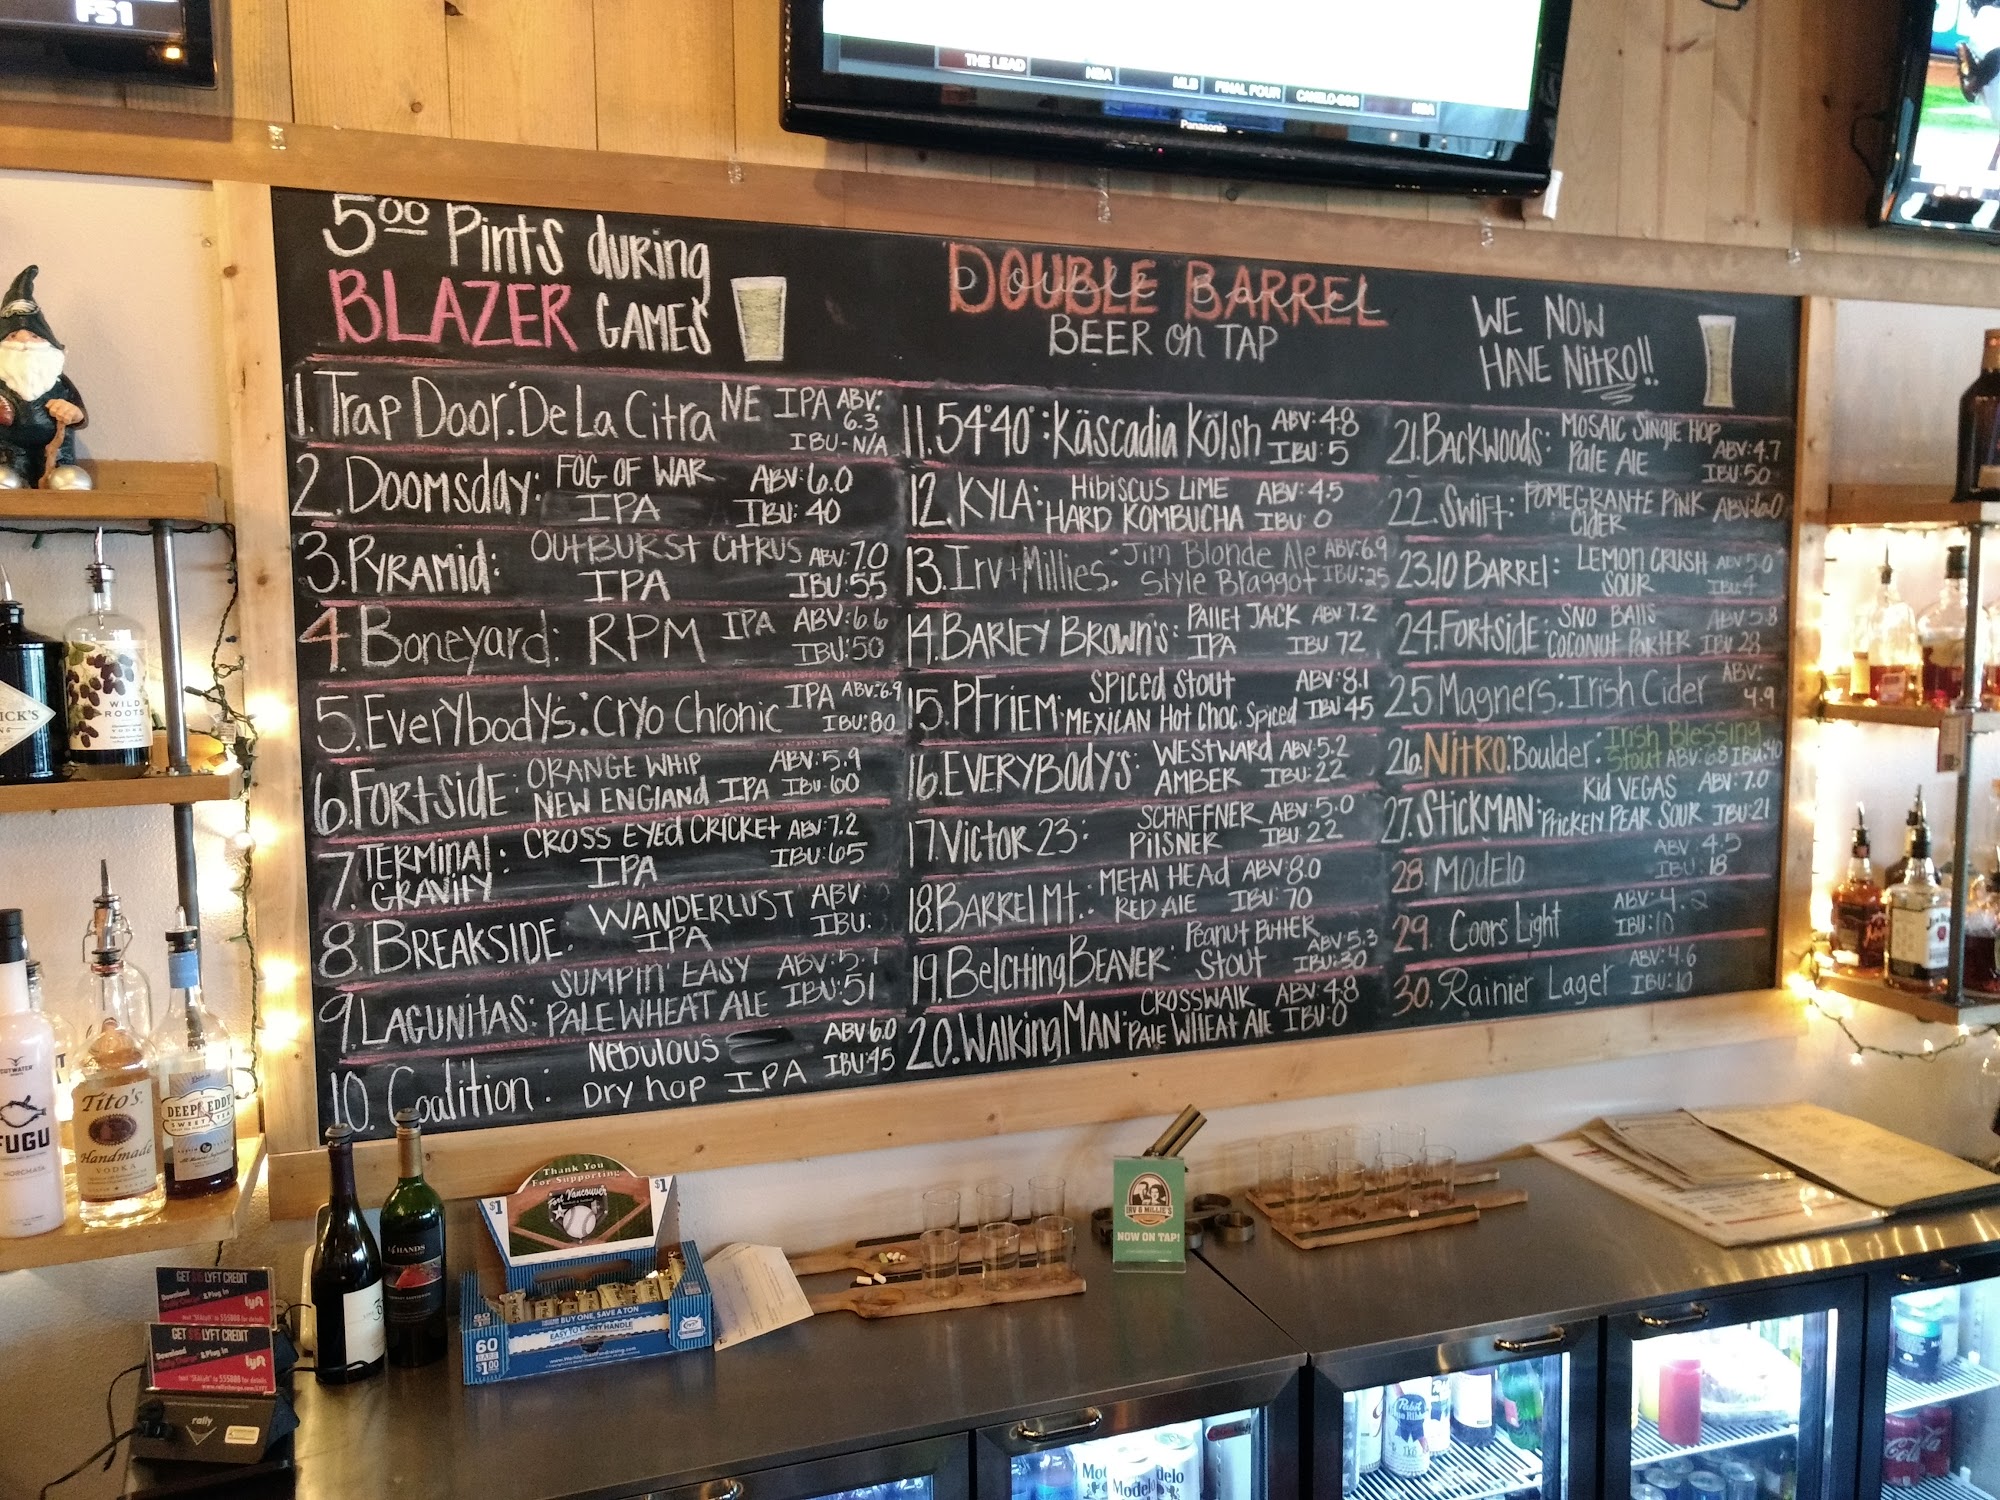 FS1
THE LEAD NBA MLB FINAL FOUR CANELO-GGG NBA
Panasonic
5.00 Pints during
BLAZER GAMES
DOUBLE BARREL
BEER on TAP
WE NOW
HAVE NITRO!!
1. Trap Door: De La Citra NE IPA ABV: 6.3 IBU-N/A
2. Doomsday: FOG OF WAR IPA ABV: 6.0 IBU: 40
3. PYRAMID: OUTBURST CITRUS IPA ABV: 7.0 IBU: 55
4. Boneyard: RPM IPA ABV: 6.6 IBU: 50
5. Everybody's: Cryo Chronic IPA ABV: 6.9 IBU: 80
6. FORTSIDE: ORANGE WHIP NEW ENGLAND IPA ABV: 5.9 IBU: 60
7. TERMINAL GRAVITY: CROSS EYED CRICKET IPA ABV: 7.2 IBU: 65
8. BREAKSIDE: WANDERLUST IPA ABV: IBU:
9. LAGUNITAS: SUMPIN' EASY PALE WHEAT ALE ABV: 5.7 IBU: 51
10. Coalition: Nebulous Dry hop IPA ABV 6.0 IBU: 45
11. 54°40°: Käscadia Kölsh ABV: 4.8 IBU: 5
12. KYLA: HIBISCUS LIME HARD KOMBUCHA ABV: 4.5 IBU: 0
13. Irv + Millies: Jim Blonde Ale Style Braggot ABV: 6.9 IBU: 25
14. BARLEY BROWN'S: PALLET JACK IPA ABV 7.2 IBU 72
15. PFRIEM: SPICED STOUT MEXICAN HOT CHOC. SPICED ABV: 8.1 IBU 45
16. EVERYBODY'S: WESTWARD AMBER ABV: 5.2 IBU: 22
17. VICTOR 23: SCHAFFNER PILSNER ABV: 5.0 IBU 22
18. BARREL MT.: METAL HEAD RED ALE ABV: 8.0 IBU: 70
19. BELCHING BEAVER: PEANUT BUTTER STOUT ABV 5.3 IBU: 30
20. WALKING MAN: CROSSWALK PALE WHEAT ALE ABV: 4.8 IBU: 0
21. BACKWOODS: MOSAIC SINGLE HOP PALE ALE ABV: 4.7 IBU: 50
22. SWIFT: POMEGRANTE PINK CIDER ABV: 6.0
23. 10 BARREL: LEMON CRUSH SOUR ABV 5.0 IBU: 4
24. FORTSIDE: SNO BALLS COCONUT PORTER ABV 5.8 IBU 28
25 Magners: Irish Cider ABV: 4.9
26. NITRO: Boulder: Irish Blessing Stout ABV: 6.8 IBU: 40
27. STICKMAN: KID VEGAS PRICKELY PEAR SOUR ABV: 7.0 IBU: 21
28. MODELO ABV 4.5 IBU: 18
29. Coors Light ABV: 4.2 IBU: 10
30. Rainier Lager ABV: 4.6 IBU: 10
WILD
ROOTS
VODKA
CUTWATER
FUGU
HOREMATA
Tito's
Handmade
VODKA
DEEP EDDY
SWEET TEA
14 HANDS
Thank You
For Supporting
Fort Vancouver
$1
$1
BUY ONE, SAVE A TON
EASY TO CARRY HANDLE
60
BARS
$1.00
www.WorldsFinestFundraising.com
IRV & MILLIE'S
NOW ON TAP!
GET $5 LYFT CREDIT
Download
& Plug in
lyft
GET $5 LYFT CREDIT
Download
"Rally Charge" & Plug in
lyft
rally
Pabst
Modelo
Coca-Cola